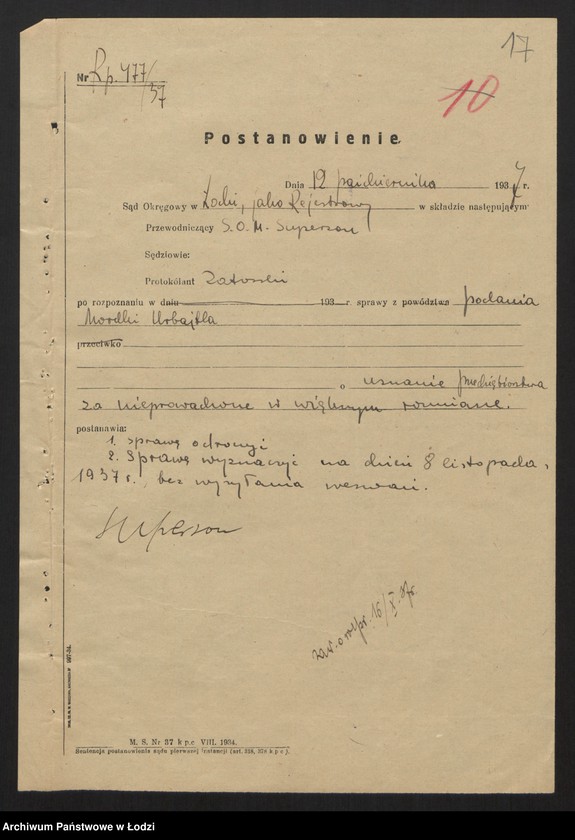 17
Nr Rp. 477/37
10
Postanowienie.
Dnia 12 października 1937 r.
Sąd Okręgowy w Łodzi, jako Rejestrowy w składzie następującym:
Przewodniczący S.O. M. Superson
Sędziowie:
Protokólant Zatorski
po rozpoznaniu w dniu 193 r. sprawy z powództwa podania
Mordki Urbajtla
przeciwko
o uznanie przedsiębiorstwa
za nieprowadzone w większym rozmiarze.
postanawia:
1. sprawę odroczyć
2. Sprawę wyznaczyć na dzień 8 listopada
1937 r., bez wysyłania wezwań.
Superson
16/X 37r.
M. S. Nr 37 k p c VIII. 1934.
Sentencja postanowienia sądu pierwszej instancji (art. 358, 378 k p c).
Archiwum Państwowe w Łodzi